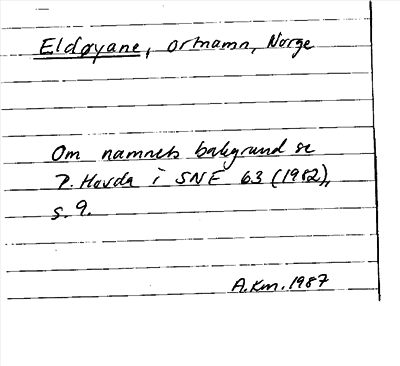 Eldøyane, ortnamn, Norge
Om namnets bakgrund se
P. Hovda i SNF 63 (1982),
s. 9.
A.Km. 1987